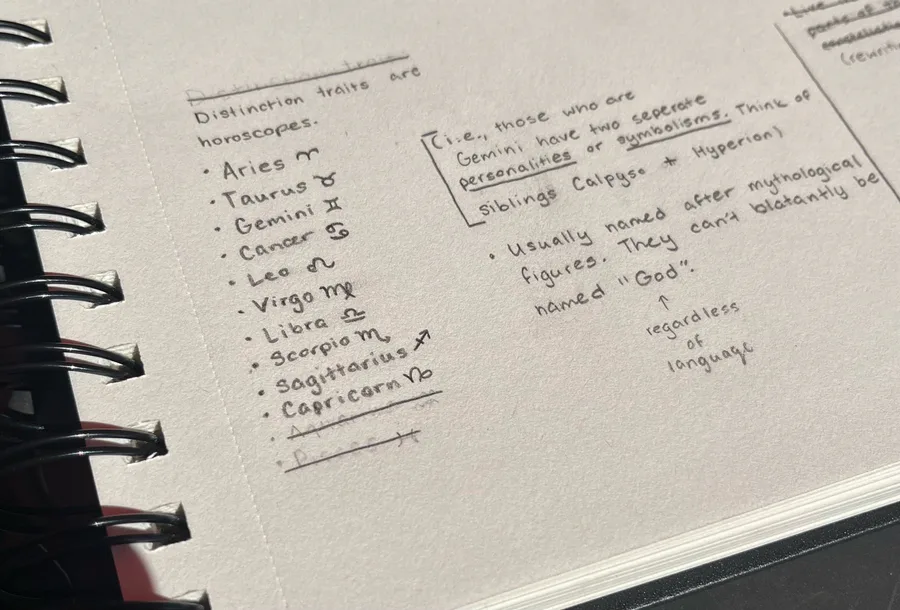 Distinction traits are
horoscopes.
• Aries ♈
• Taurus ♉
• Gemini ♊
• Cancer ♋
• Leo ♌
• Virgo ♍
• Libra ♎
• Scorpio ♏
• Sagittarius ♐
• Capricorn ♑
• Aquarius ♒
• Pisces ♓
(i.e., those who are
Gemini have two seperate
personalities or symbolisms. Think of
siblings Calpyso + Hyperion)
• Usually named after mythological
figures. They can't blatantly be
named "God".
↑
regardless
of
language
parts of
(rewriti